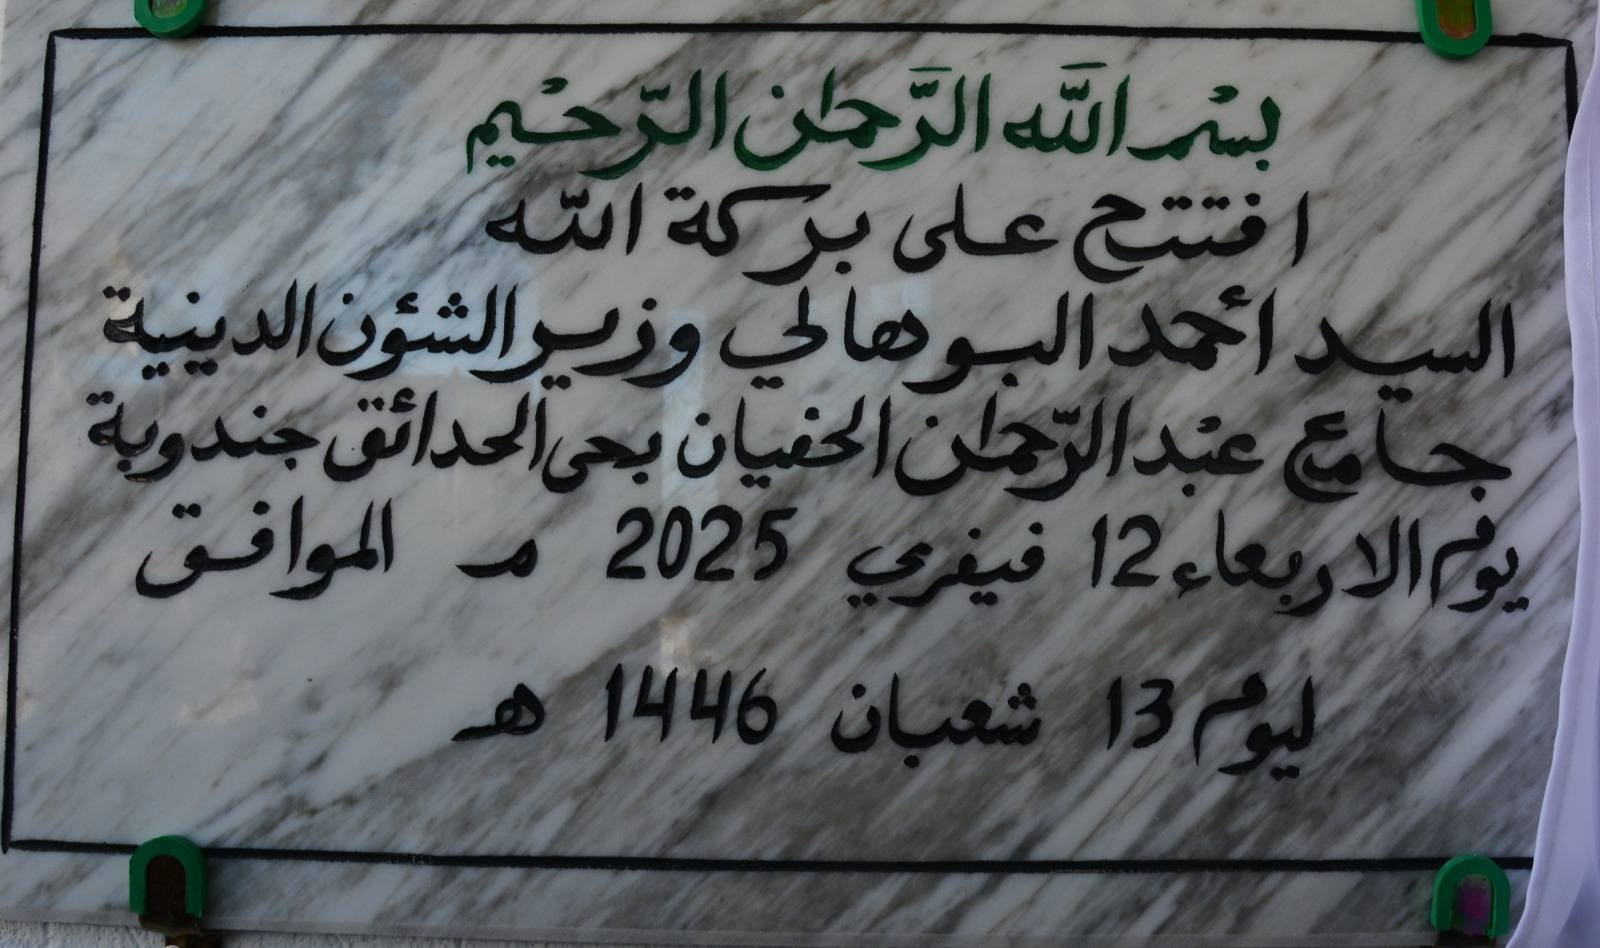 بسْم اللَّه الرَّحمان الرّحيْم
افتتح على بركة اللّه
السيد أحمد البوهالي وزير الشؤن الدينية
جامع عبْد الرّحمان الحفيان بحى الحدائق جندوبة
يوم الاربعاء 12 فيفري 2025 م الموافق
ليوم 13 شعبان 1446 هـ